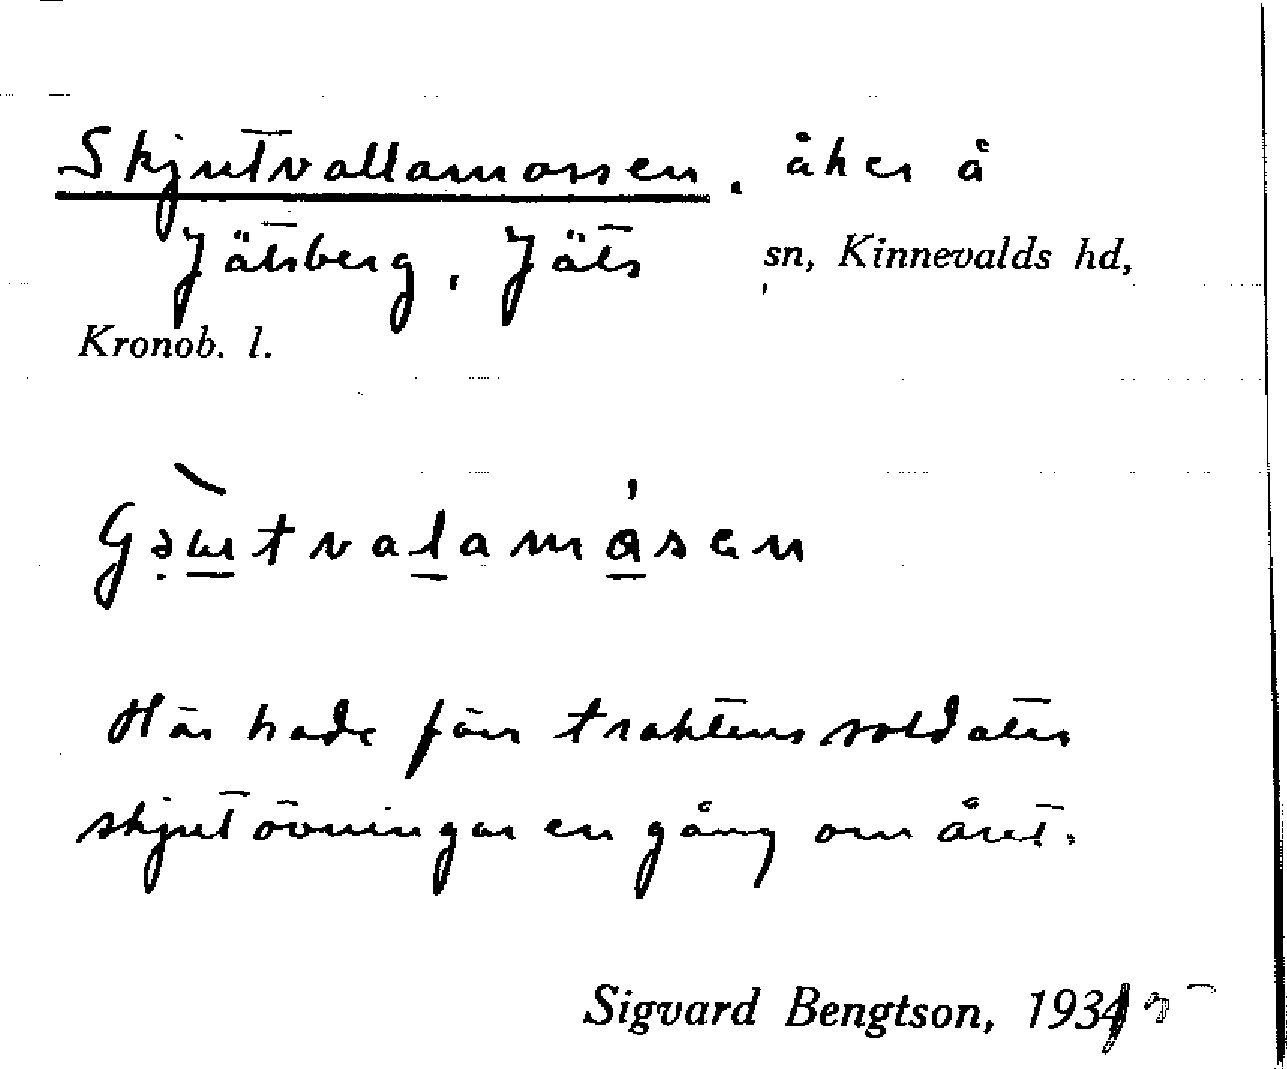 Skjutvallamossen, åker å
Jätsberg, Jäts sn, Kinnevalds hd,
Kronob. l.
Här hade förr traktens soldater
skjutövningar en gång om året.
Sigvard Bengtson, 193